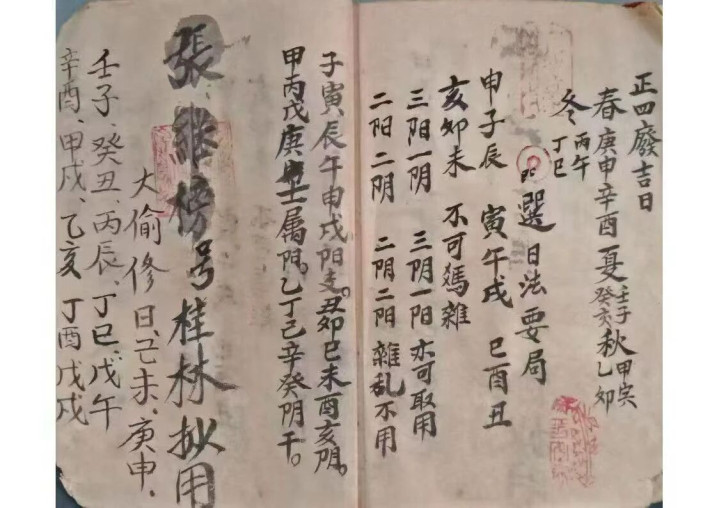 正四廢吉日
春庚申辛酉 夏壬子癸亥 秋甲寅乙卯
冬丙午丁巳
選日法要局
申子辰 寅午戌 巳酉丑
亥卯未 不可媽雜
三阳一阴 三阴一阳 亦可取用
二阳二阴 二阴二阳 雜乱不用
子寅辰午申戌阳支。丑卯巳未酉亥阴。
甲丙戊庚壬属阳。乙丁己辛癸阴干。
張継榜号桂林拟用
大偷修日、己未、庚申、
壬子、癸丑、丙辰、丁巳、戊午
辛酉、甲戌、乙亥 丁酉戊戌